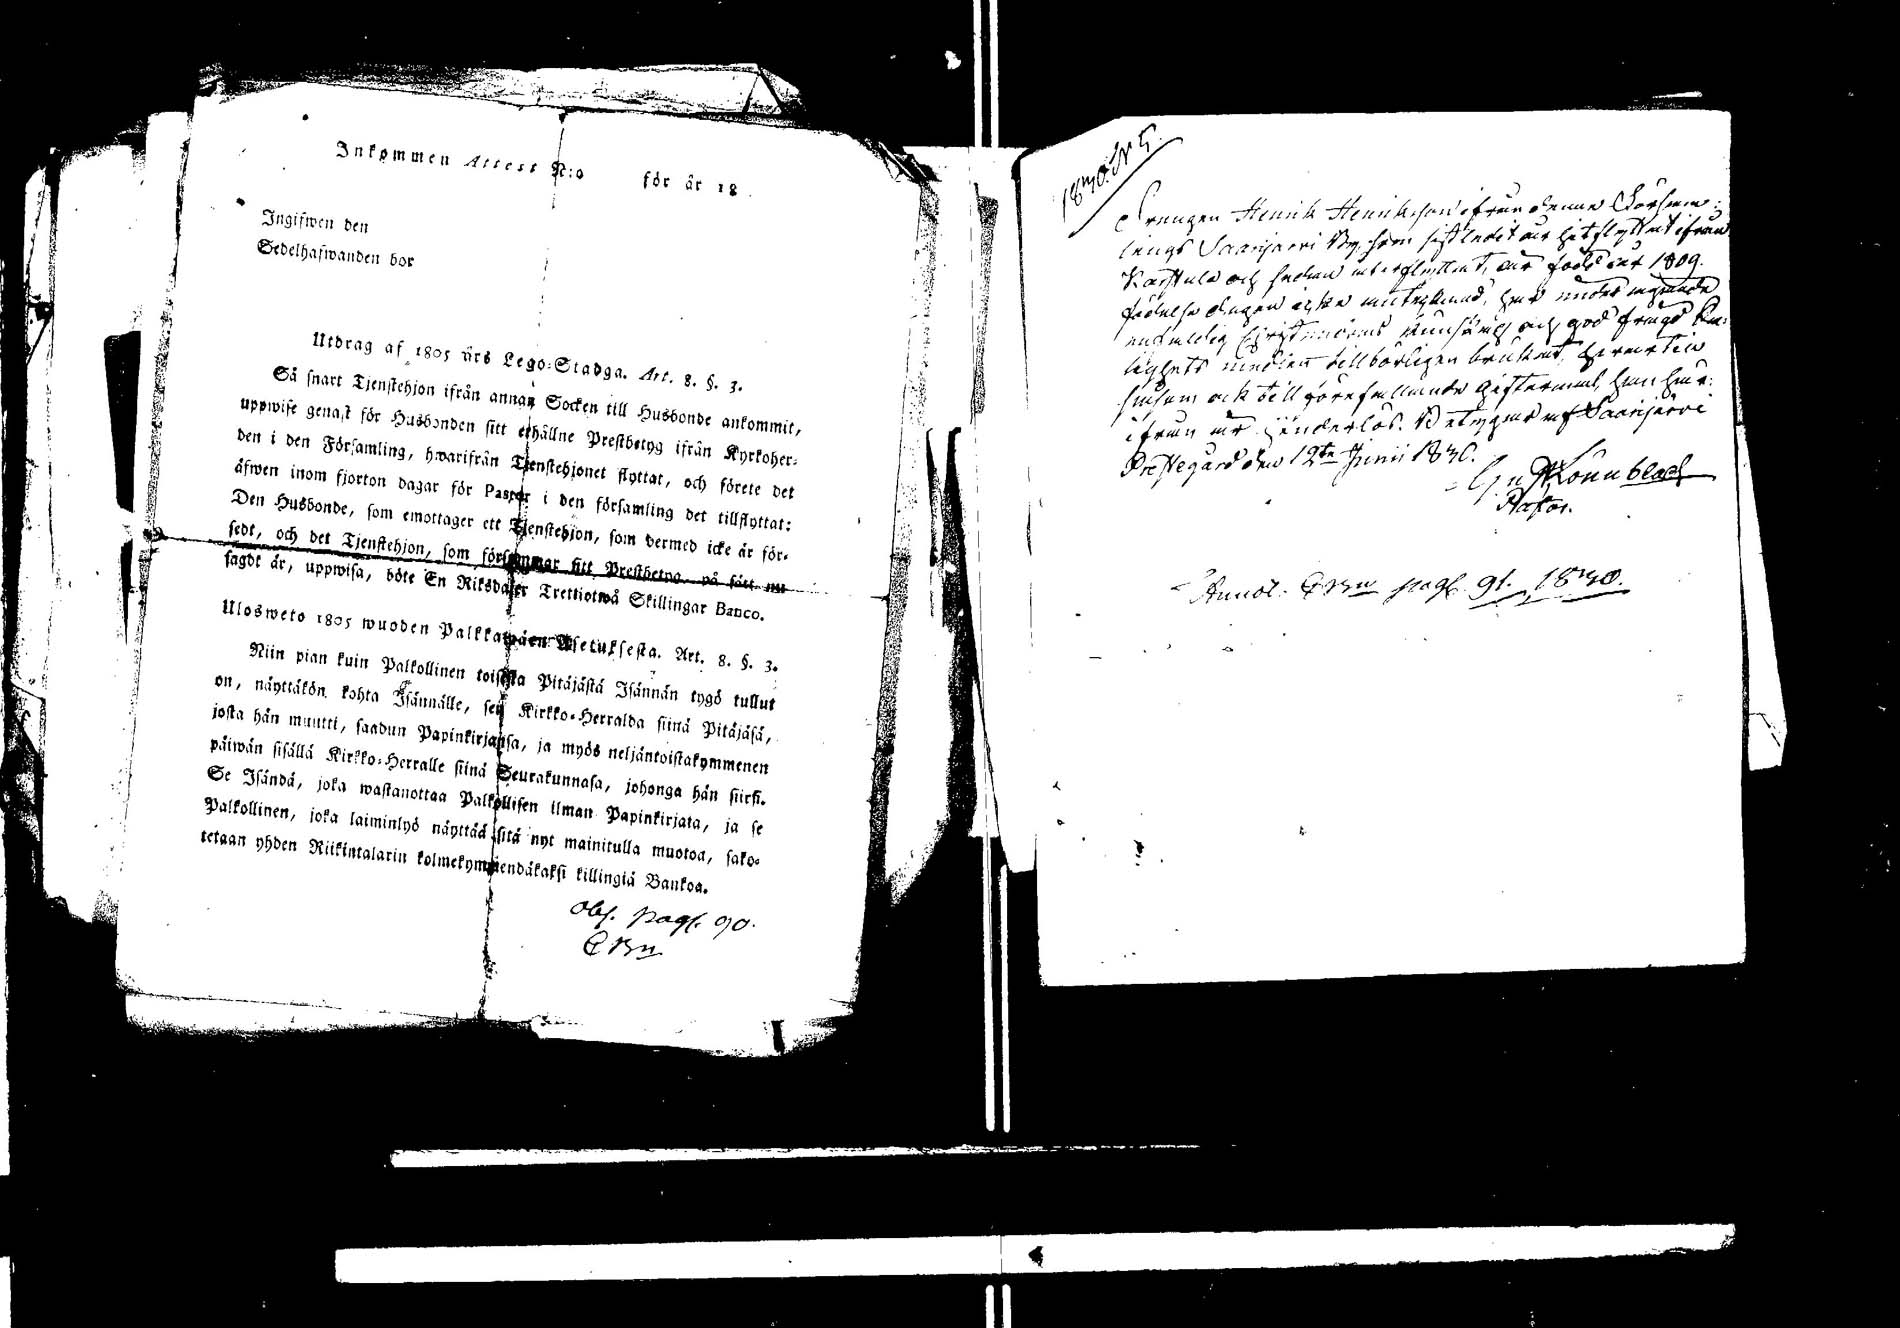 Inkommen Attest N:o för år 18
Ingifwen den
Sedelhafwanden bor
Utdrag af 1805 års Lego-Stadga. Art. 8. §. 3.
Så snart Tjenstehjon ifrån annan Socken till Husbonde ankommit,
uppwise genast för Husbonden sitt erhållne Prestbetyg ifrån Kyrkoher-
den i den Församling, hwarifrån Tjenstehjonet flyttat, och förete det
äfwen inom fjorton dagar för Pastor i den församling det tillflyttat:
Den Husbonde, som emottager ett Tjenstehjon, som dermed icke är för-
sedt, och det Tjenstehjon, som försummar sitt Prestbetyg, på sätt nu
sagdt är, uppwisa, böte En Riksdaler Trettiotwå Skillingar Banco.
Ulosweto 1805 wuoden Palkkawäen Asetuksesta. Art. 8. §. 3.
Niin pian kuin Palkollinen toisesta Pitäjästä Isännän tygö tullut
on, näyttäkön kohta Isännälle, sen Kirkko-Herralda siinä Pitäjäsä,
josta hän muutti, saadun Papinkirjansa, ja myös neljäntoistakymmenen
päiwän sisällä Kirkko-Herralle siinä Seurakunnasa, johonga hän siirsi.
Se Isändä, joka wastanottaa Palkollisen ilman Papinkirjata, ja se
Palkollinen, joka laiminlyö näyttää sitä nyt mainitulla muotoa, sako-
tetaan yhden Riikintalarin kolmekymmendäkaksi killingiä Bankoa.
obs. pag. 90.
1830. N 5.
Drengen Henrik Henriksson ifrån denne Försam-
lings Saarijärvi By, som sistledit år hitflyttat ifrån
Karstula och sedan återflyttat, är född år 1809.
födelse dagen icke antecknad, har under
enfaldig Christendoms kunskap och god frägd
till
ock till förefallande giftermål, han här-
ifrån är hinderlös. Betygar af Saarijärvi
Prestegård den 12te Junii 1830.
Pastor.
Annot. pag. 91. 1830.